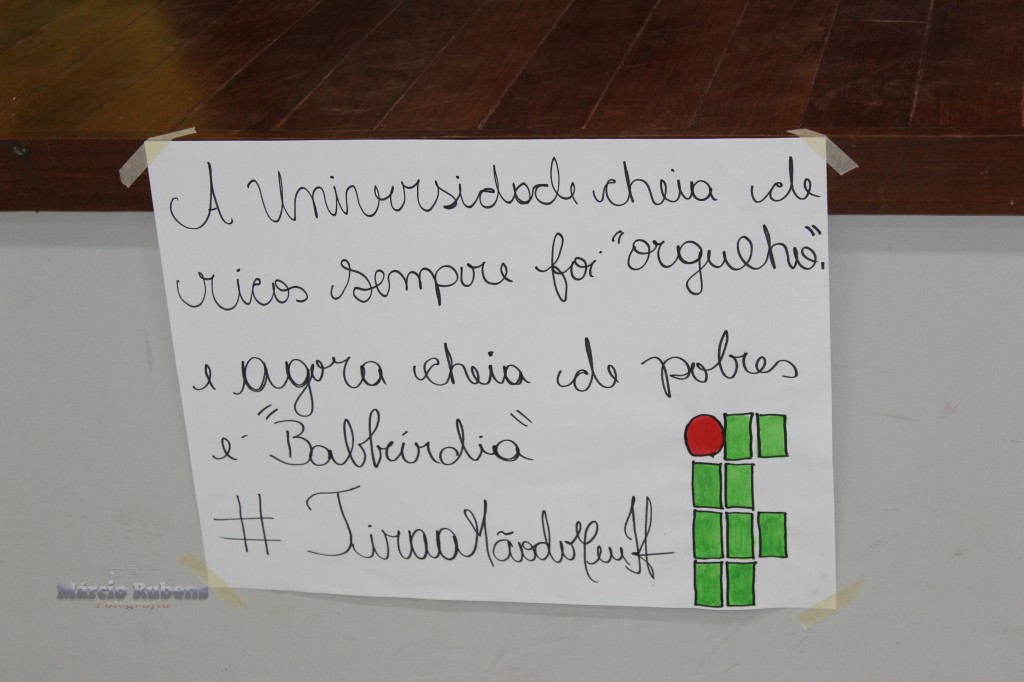 A Universidade cheia de
ricos sempre foi "orgulho".
e agora cheia de pobres
é "Balbúrdia"
# TiraaMãodoMeuIf
Márcio Rubens
Fotografia